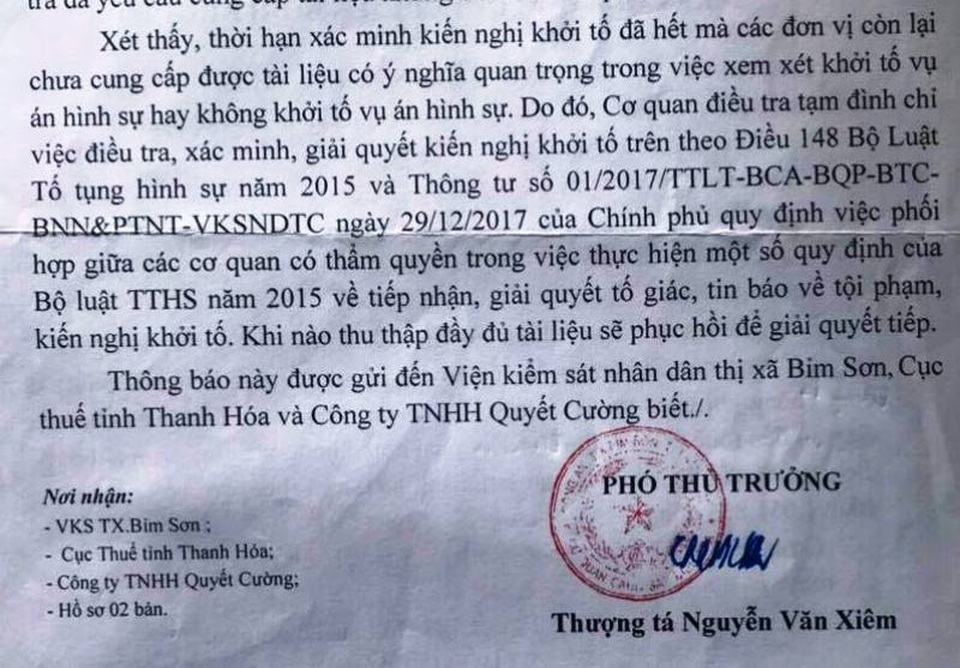 tra đã yêu cầu cung cấp tài liệu
Xét thấy, thời hạn xác minh kiến nghị khởi tố đã hết mà các đơn vị còn lại
chưa cung cấp được tài liệu có ý nghĩa quan trọng trong việc xem xét khởi tố vụ
án hình sự hay không khởi tố vụ án hình sự. Do đó, Cơ quan điều tra tạm đình chỉ
việc điều tra, xác minh, giải quyết kiến nghị khởi tố trên theo Điều 148 Bộ Luật
Tố tụng hình sự năm 2015 và Thông tư số 01/2017/TTLT-BCA-BQP-BTC-
BNN&PTNT-VKSNDTC ngày 29/12/2017 của Chính phủ quy định việc phối
hợp giữa các cơ quan có thẩm quyền trong việc thực hiện một số quy định của
Bộ luật TTHS năm 2015 về tiếp nhận, giải quyết tố giác, tin báo về tội phạm,
kiến nghị khởi tố. Khi nào thu thập đầy đủ tài liệu sẽ phục hồi để giải quyết tiếp.
Thông báo này được gửi đến Viện kiểm sát nhân dân thị xã Bỉm Sơn, Cục
thuế tỉnh Thanh Hóa và Công ty TNHH Quyết Cường biết./.
Nơi nhận:
- VKS TX.Bỉm Sơn ;
- Cục Thuế tỉnh Thanh Hóa;
- Công ty TNHH Quyết Cường;
- Hồ sơ 02 bản.
PHÓ THỦ TRƯỞNG
Thượng tá Nguyễn Văn Xiêm